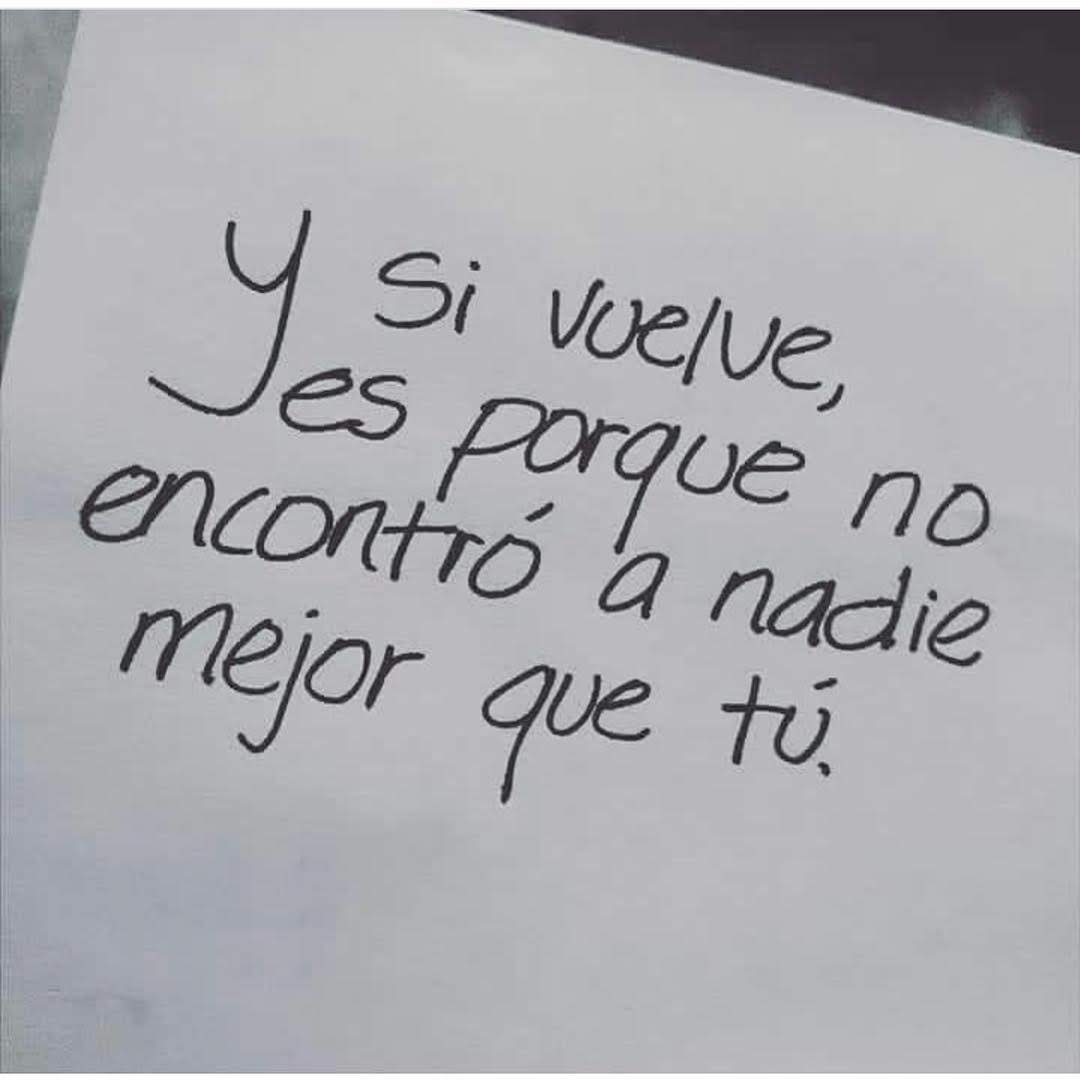 Y si vuelve,
es porque no
encontró a nadie
mejor que tú.